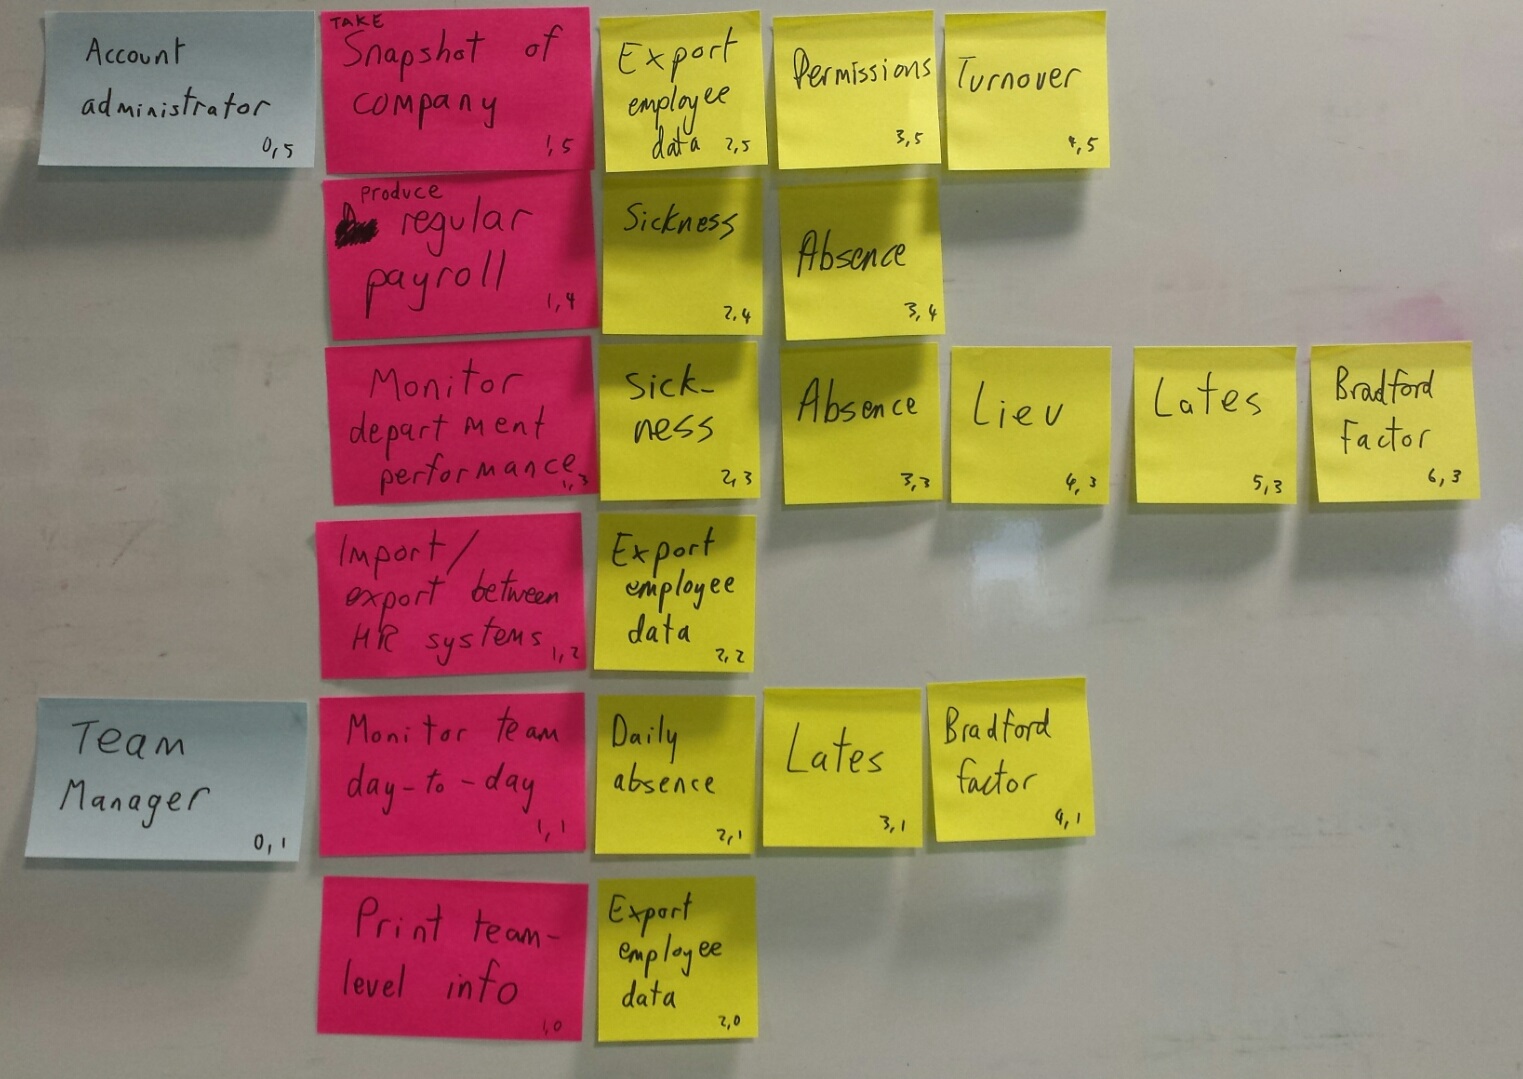 Account
administrator
0,5
TAKE
Snapshot of
company
1,5
Export
employee
data 2,5
Permissions
3,5
Turnover
4,5
Produce
regular
payroll
1,4
Sickness
2,4
Absence
3,4
Monitor
department
performance
1,3
Sick-
ness
2,3
Absence
3,3
Liev
4,3
Lates
5,3
Bradford
Factor
6,3
Import/
export between
HR systems
1,2
Export
employee
data
2,2
Team
Manager
0,1
Monitor team
day-to-day
1,1
Daily
absence
2,1
Lates
3,1
Bradford
factor
4,1
Print team-
level info
1,0
Export
employee
data
2,0